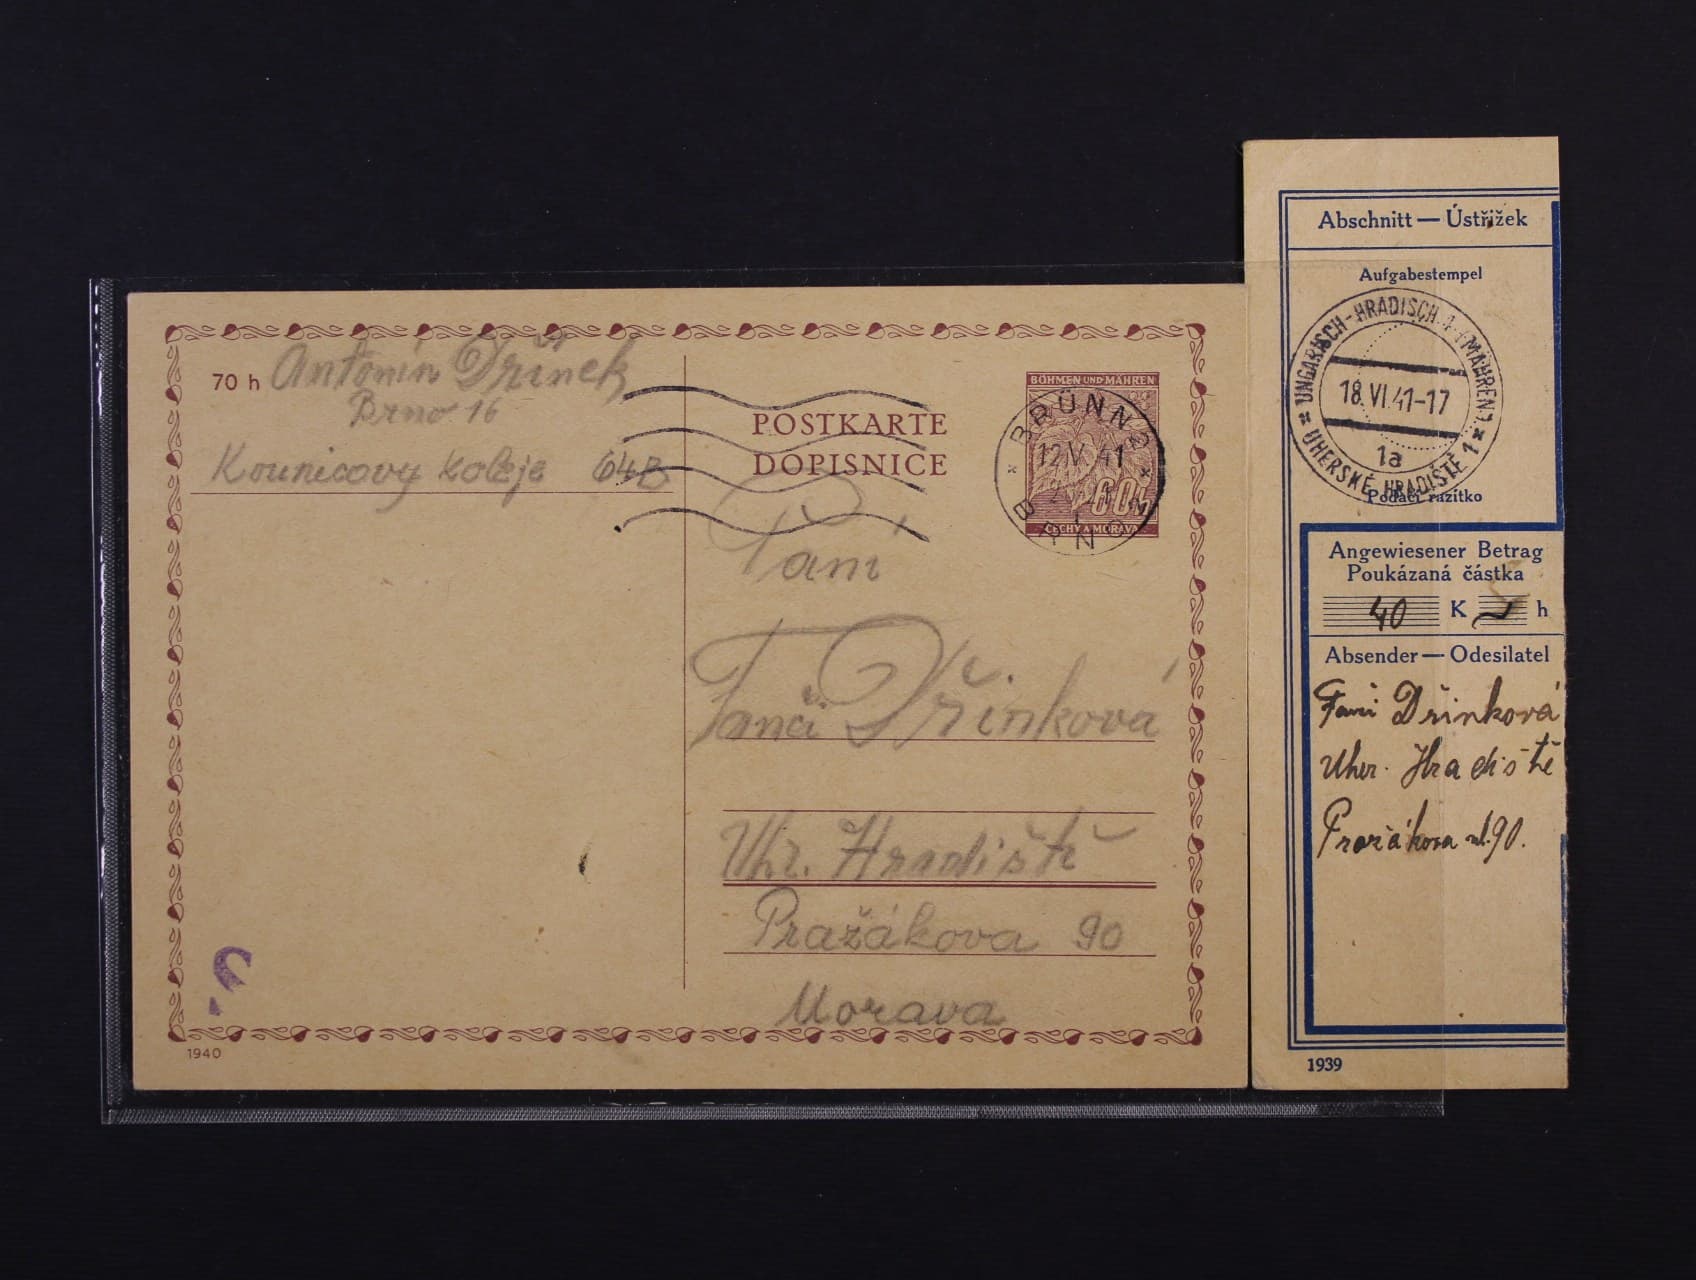 70 h Antonín Dřínek
Brno 16
Kounicovy koleje 64B
POSTKARTE
DOPISNICE
BÖHMEN UND MÄHREN
60h
ČECHY A MORAVA
BRÜNN 2
12.V.41
BRNO 2
Paní
Fanči Dřínková
Uhr. Hradiště
Pražákova 90
Morava
1940
Abschnitt — Ústřižek
Aufgabestempel
UNGARISCH-HRADISCH 1 (MÄHREN)
18.VI.41-17
1a
UHERSKÉ HRADIŠTĚ 1
Podací razítko
Angewiesener Betrag
Poukázaná částka
40 K h
Absender — Odesilatel
Fanči Dřínková
Uher. Hradiště
Pražákova ul. 90.
1939